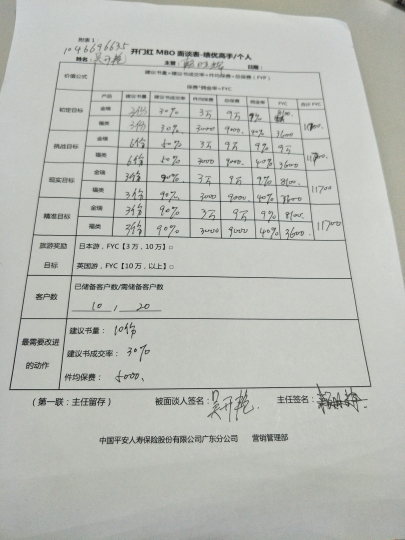 附表 1
1046696635
开门红 MBO 面谈表-绩优高手/个人
姓名：吴开艳 主管： 日期：
价值公式 建议书量*建议书成交率*件均保费=总保费（FYP）
保费*佣金率=FYC
产品 建议书量 建议书成交率 件均保费 总保费 佣金率 FYC 合计 FYC
初定目标 金瑞 30% 3万 9万 9% 8100
福类 30% 3000 9000 40% 3600
挑战目标 金瑞 6份 50% 3万 9万 9% 9万
福类 6份 50% 3000 9000 40% 3600
现实目标 金瑞 3份 90% 3万 9万 9% 8100 11700
福类 3份 90% 3000 9000 40% 3600
精准目标 金瑞 3份 90% 3万 9万 9% 8100 11700
福类 3份 90% 3000 9000 40% 3600
旅游奖励 日本游，FYC【3 万，10 万】□
目标 英国游，FYC【10 万，以上】□
客户数 已储备客户数/需储备客户数
10 ， 20
最需要改进的动作 建议书量：10份
建议书成交率：30%
件均保费：5000、
（第一联：主任留存） 被面谈人签名：吴开艳 主任签名：
中国平安人寿保险股份有限公司广东分公司 营销管理部